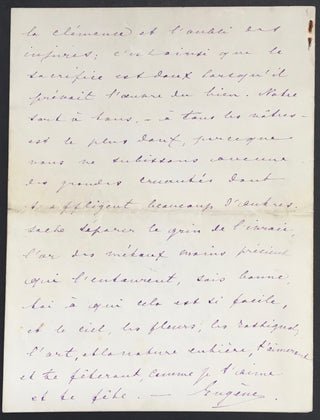 la clémence et l'oubli des
injures; c'est ainsi que le
sacrifice est doux lorsqu'il
prévaut l'œuvre du bien. Notre
sort à tous, — à tous les nôtres —
est le plus doux, parceque
nous ne subissons aucune
des grandes cruautés dont
s'affligent beaucoup d'autres.
sache séparer le grain de l'ivraie,
l'or des métaux moins précieux
qui l'entourent, sois bonne,
toi à qui cela est si facile,
et le ciel, les fleurs, les
l'art, et la nature entière, t'aimeront
et te fêteront comme je t'aime
et te fête. — Eugène